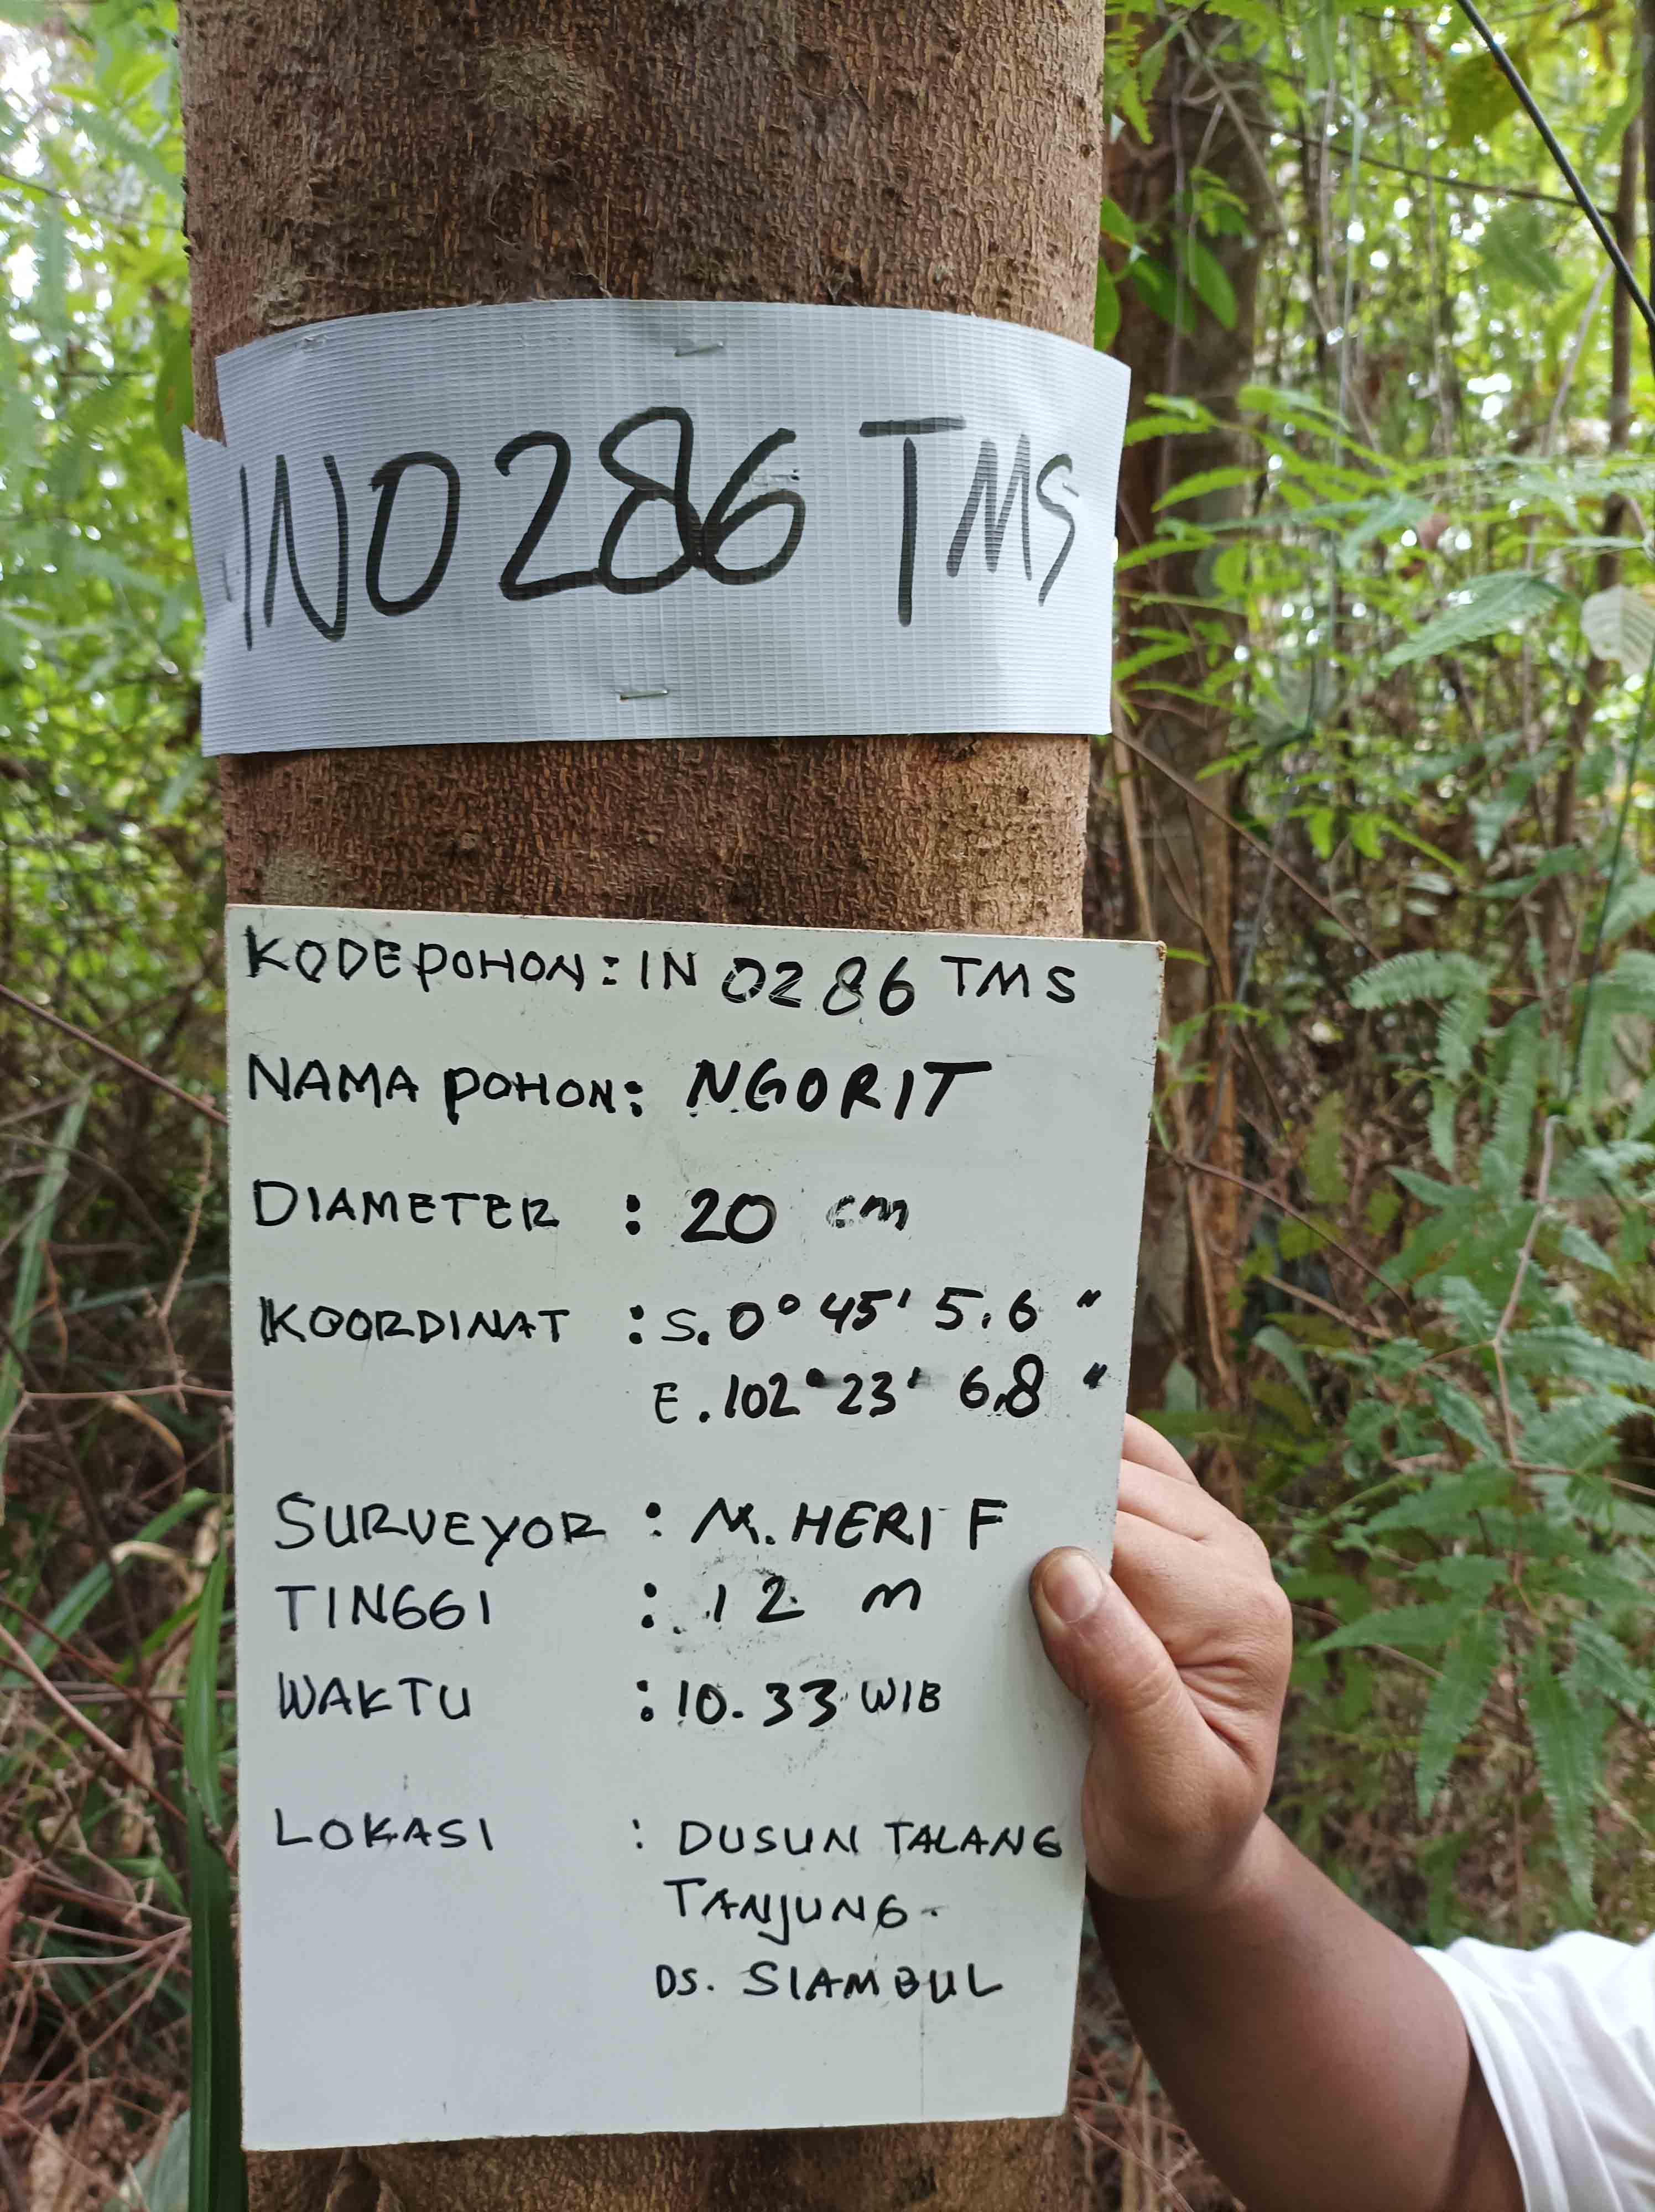 IN0286 TMS
KODE POHON : IN 0286 TMS
NAMA POHON : NGORIT
DIAMETER : 20 cm
KOORDINAT : S. 0° 45' 5.6 "
E. 102° 23' 6,8 "
SURVEYOR : M. HERI F
TINGGI : 12 m
WAKTU : 10.33 WIB
LOKASI : DUSUN TALANG
TANJUNG.
DS. SIAMBUL